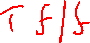 T f/f